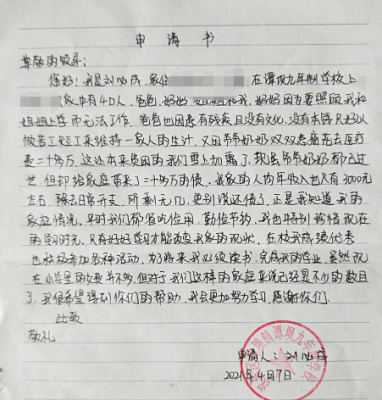 申请书
尊敬的领导:
您好!我是刘 家住 在谭坝九年制学校上
家中有4口人,爸爸,妈妈,姐姐和我,妈妈因为要照顾我和
姐姐上学而无法工作,爸爸也因患有残疾且没有文化,没有本领,只好以
做苦工短工来维持一家人的生计,又因爷爷奶奶双双患癌花去医疗
费二十多万,这让本来贫困的我们雪上加霜了,现虽爷爷奶奶都已过
世,但却给家庭带来了二十多万的债,我家的人均年收入也只有3000元
左右,除去日常开支,所剩无几,更别说还债了,正是我知道我的
家庭情况,平时我们都省吃俭用,勤俭节约,我也特别珍惜现在
的学习时光,只有好好学习才能改变我家的现状,在校我成绩优秀
也积极参加各种活动,为将来我必须读书,完成我的学业,虽然现
在小学里的欠费并不多,但对于我们这样的家庭来说已经是不小的数目
了,我很希望得到你们的帮助,我会更加努力学习,感谢你们。
此致
敬礼
申请人:刘
2021年4月9日
镇谭坝九年 学校